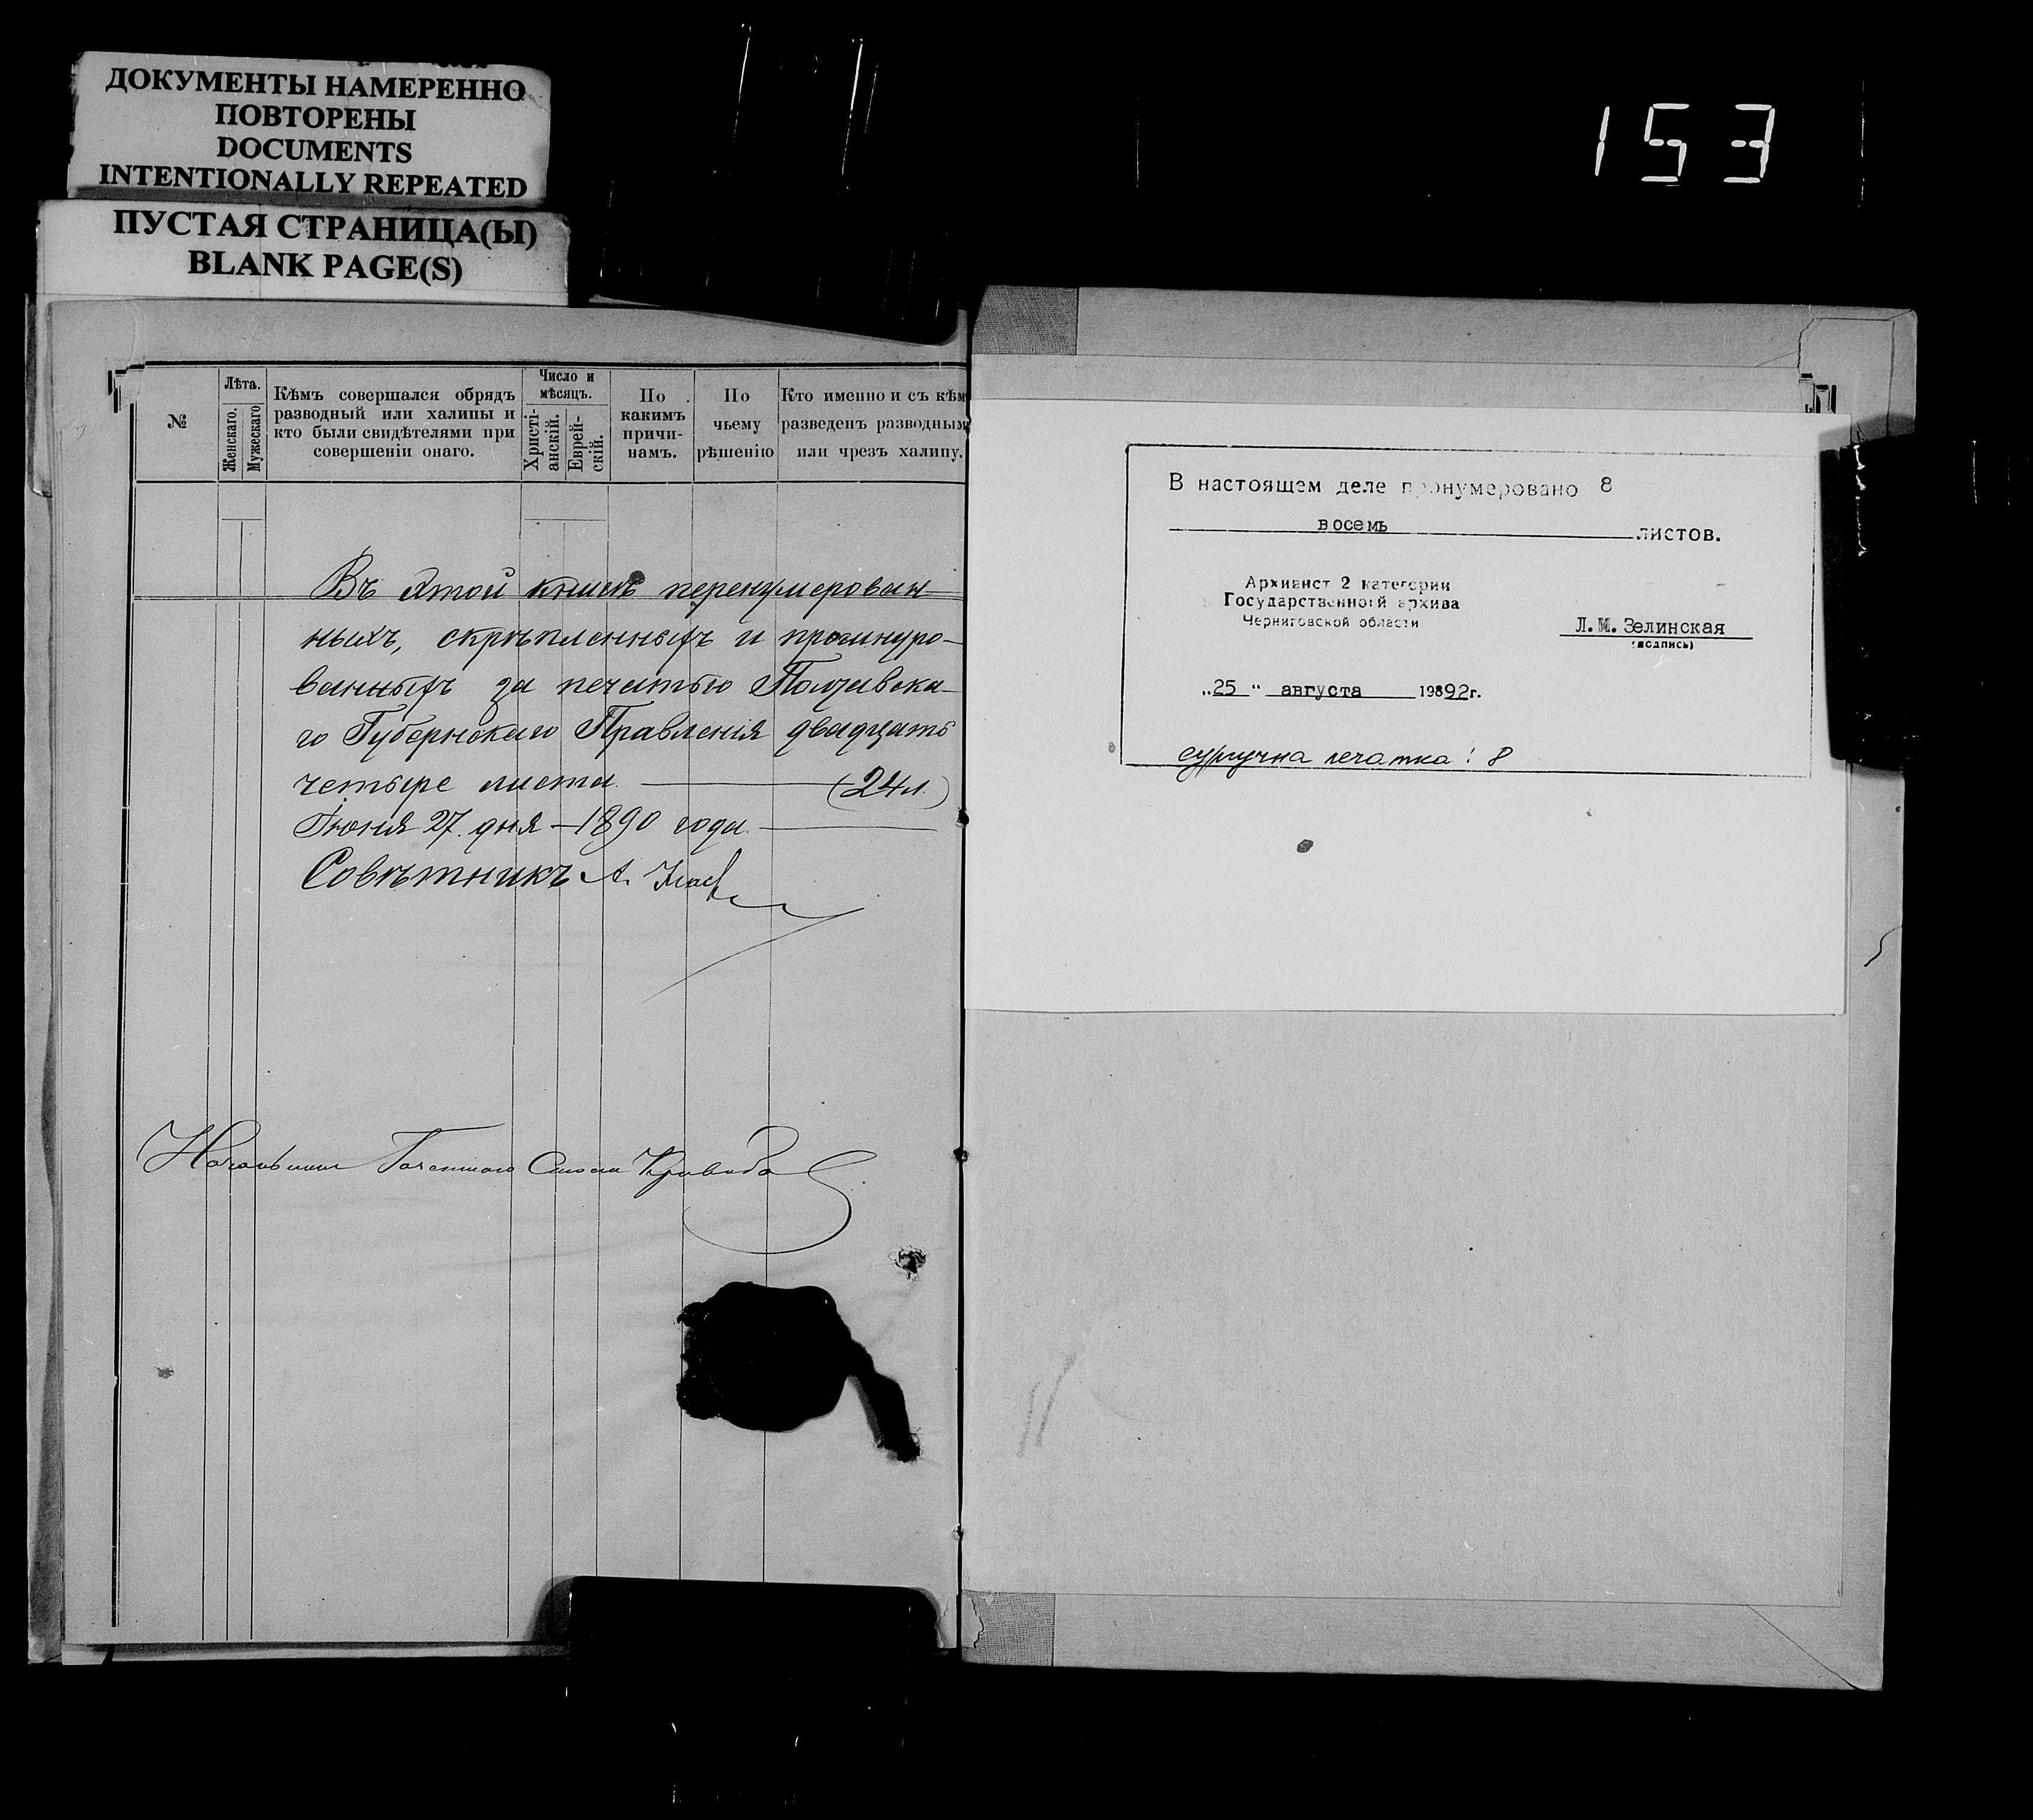 ДОКУМЕНТЫ НАМЕРЕННО
ПОВТОРЕНЫ
DOCUMENTS
INTENTIONALLY REPEATED
ПУСТАЯ СТРАНИЦА(Ы)
BLANK PAGE(S)
153
№
Лѣта.
Женскаго.
Мужескаго
Кѣмъ совершался обрядъ
разводный или халицы и
кто были свидѣтелями при
совершеніи онаго.
Число и
мѣсяцъ.
Христі-
анскій.
Еврей-
скій.
По
какимъ
причи-
намъ.
По
чьему
рѣшенію
Кто именно и съ кѣм
разведенъ разводным
или чрезъ халицу.
Въ этой книгѣ перенумерован-
ныхъ, скрѣпленныхъ и прошнуро-
ванныхъ за печатью Полтавска-
го Губернскаго Правленія двадцать
четыре листа. (24 л.)
Іюня 27 дня - 1890 года.
Совѣтникъ А.
Начальник Стола
В настоящем деле пронумеровано 8
восемь листов.
Архивист 2 категории
Государственной архива
Черниговской области
Л.М. Зелинская
(подпись)
„25" августа 19892г.
сургучна печатка: 8